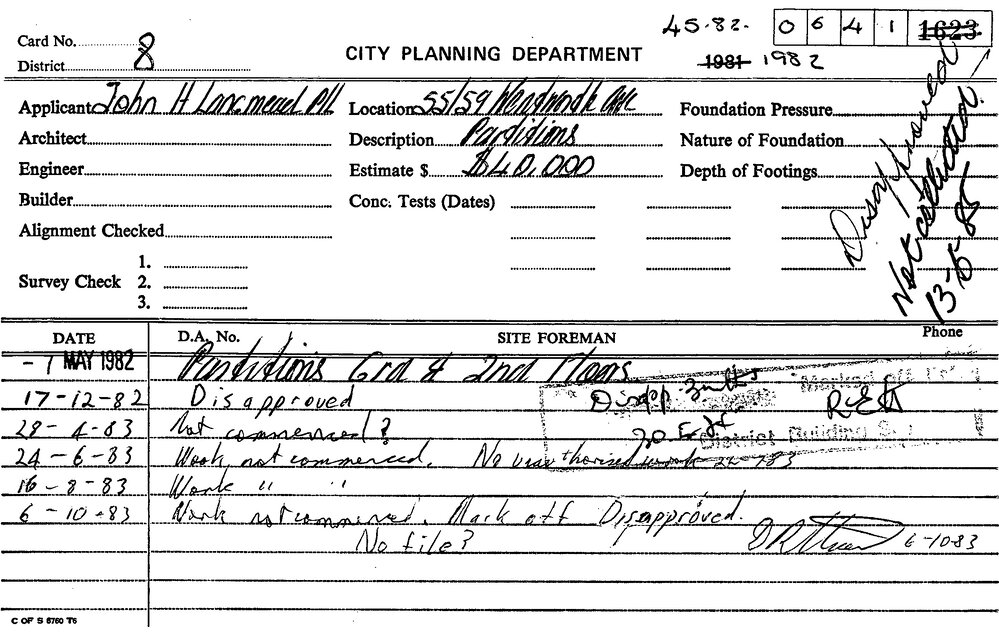 45.82. 0 6 4 1 1623
Card No.
District 8
CITY PLANNING DEPARTMENT
1981 1982
Applicant John H Langmead P/L Location 55/59 Wentworth Ave Foundation Pressure
Architect Description Partitions Nature of Foundation
Engineer Estimate $ $40,000 Depth of Footings
Builder Conc. Tests (Dates)
Alignment Checked
Survey Check 1.
2.
3.
Disapproved
Not
13-5-85
DATE D.A. No. SITE FOREMAN Phone
- 1 MAY 1982 Partitions Grd & 2nd Floors
Marked off
17-12-82 Disapproved Disapp.
28-4-83 Not commenced?
District Building
24-6-83 Work not commenced. No unauthorised work
16-8-83 Work " "
6-10-83 Work not commenced. Mark off Disapproved.
No file? 6-10-83
C OF S 6760 T6